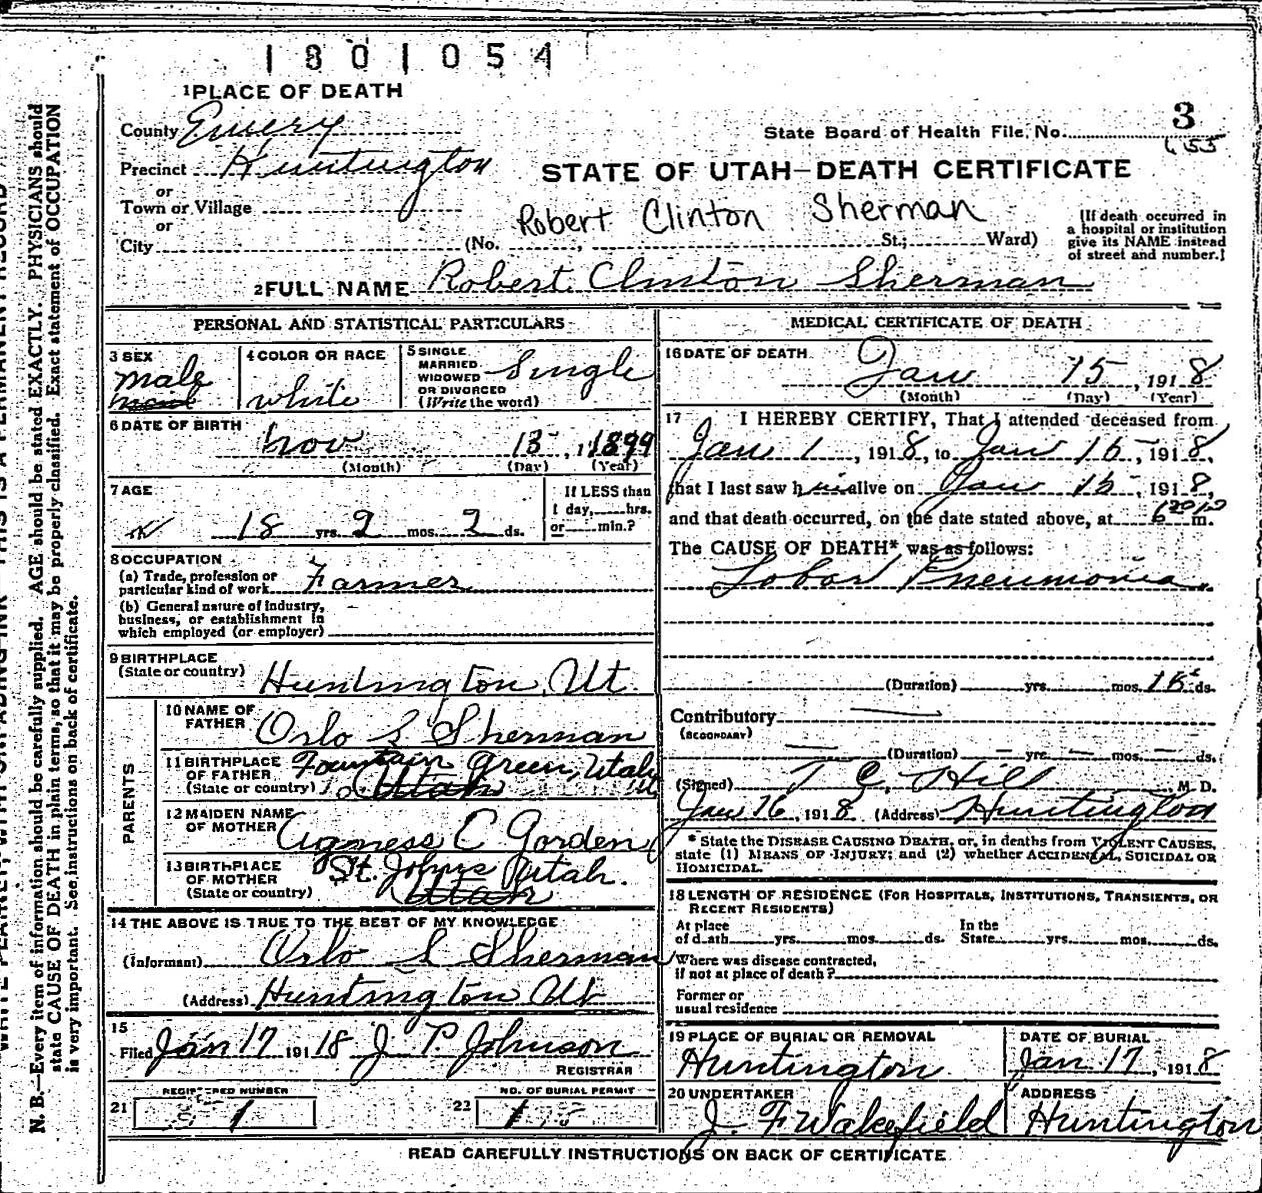 1801054
1 PLACE OF DEATH
County Emery
3
State Board of Health File, No.
655
Precinct Huntington
STATE OF UTAH—DEATH CERTIFICATE
or
Town or Village
or
Robert Clinton Sherman
City (No. , St.; Ward)
[If death occurred in
a hospital or institution
give its NAME instead
of street and number.]
2 FULL NAME Robert Clinton Sherman
PERSONAL AND STATISTICAL PARTICULARS
3 SEX
male
4 COLOR OR RACE
white
5 SINGLE
MARRIED
WIDOWED
OR DIVORCED
(Write the word)
Single
6 DATE OF BIRTH
Nov 13, 1899
(Month) (Day) (Year)
7 AGE
18 yrs. 2 mos. 2 ds.
If LESS than
1 day, hrs.
or min.?
8 OCCUPATION
(a) Trade, profession or
particular kind of work Farmer
(b) General nature of industry,
business, or establishment in
which employed (or employer)
9 BIRTHPLACE
(State or country) Huntington, Ut
PARENTS
10 NAME OF
FATHER Orlo S Sherman
11 BIRTHPLACE
OF FATHER
(State or country)
Fountain Green, Utah
Utah
12 MAIDEN NAME
OF MOTHER Agness C Gorden
13 BIRTHPLACE
OF MOTHER
(State or country)
St. Johns Utah.
Utah
14 THE ABOVE IS TRUE TO THE BEST OF MY KNOWLEDGE
(Informant) Orlo S Sherman
(Address) Huntington Ut
15
Filed Jan 17 191 18 J P Johnson
REGISTRAR
REGISTERED NUMBER
21 1
NO. OF BURIAL PERMIT
22 1
MEDICAL CERTIFICATE OF DEATH
16 DATE OF DEATH
Jan 15, 1918
(Month) (Day) (Year)
17 I HEREBY CERTIFY, That I attended deceased from
Jan 1, 1918, to Jan 15, 1918,
that I last saw him alive on Jan 15, 1918,
and that death occurred, on the date stated above, at m.
The CAUSE OF DEATH* was as follows:
Lobar Pneumonia
(Duration) yrs. mos. 15 ds.
Contributory
(SECONDARY)
(Duration) yrs. mos. ds.
(Signed) T C Hill M. D.
Jan 16, 1918 (Address) Huntington
* State the DISEASE CAUSING DEATH, or, in deaths from VIOLENT CAUSES,
state (1) MEANS OF INJURY; and (2) whether ACCIDENTAL, SUICIDAL OR
HOMICIDAL.
18 LENGTH OF RESIDENCE (FOR HOSPITALS, INSTITUTIONS, TRANSIENTS, OR
RECENT RESIDENTS)
At place
of death yrs. mos. ds.
In the
State yrs. mos. ds.
Where was disease contracted,
if not at place of death?
Former or
usual residence
19 PLACE OF BURIAL OR REMOVAL
Huntington
DATE OF BURIAL
Jan. 17, 1918
20 UNDERTAKER
J. F Wakefield
ADDRESS
Huntington
READ CAREFULLY INSTRUCTIONS ON BACK OF CERTIFICATE
N. B.—Every item of information should be carefully supplied. AGE should be stated EXACTLY. PHYSICIANS should
state CAUSE OF DEATH in plain terms, so that it may be properly classified. Exact statement of OCCUPATION
is very important. See instructions on back of certificate.